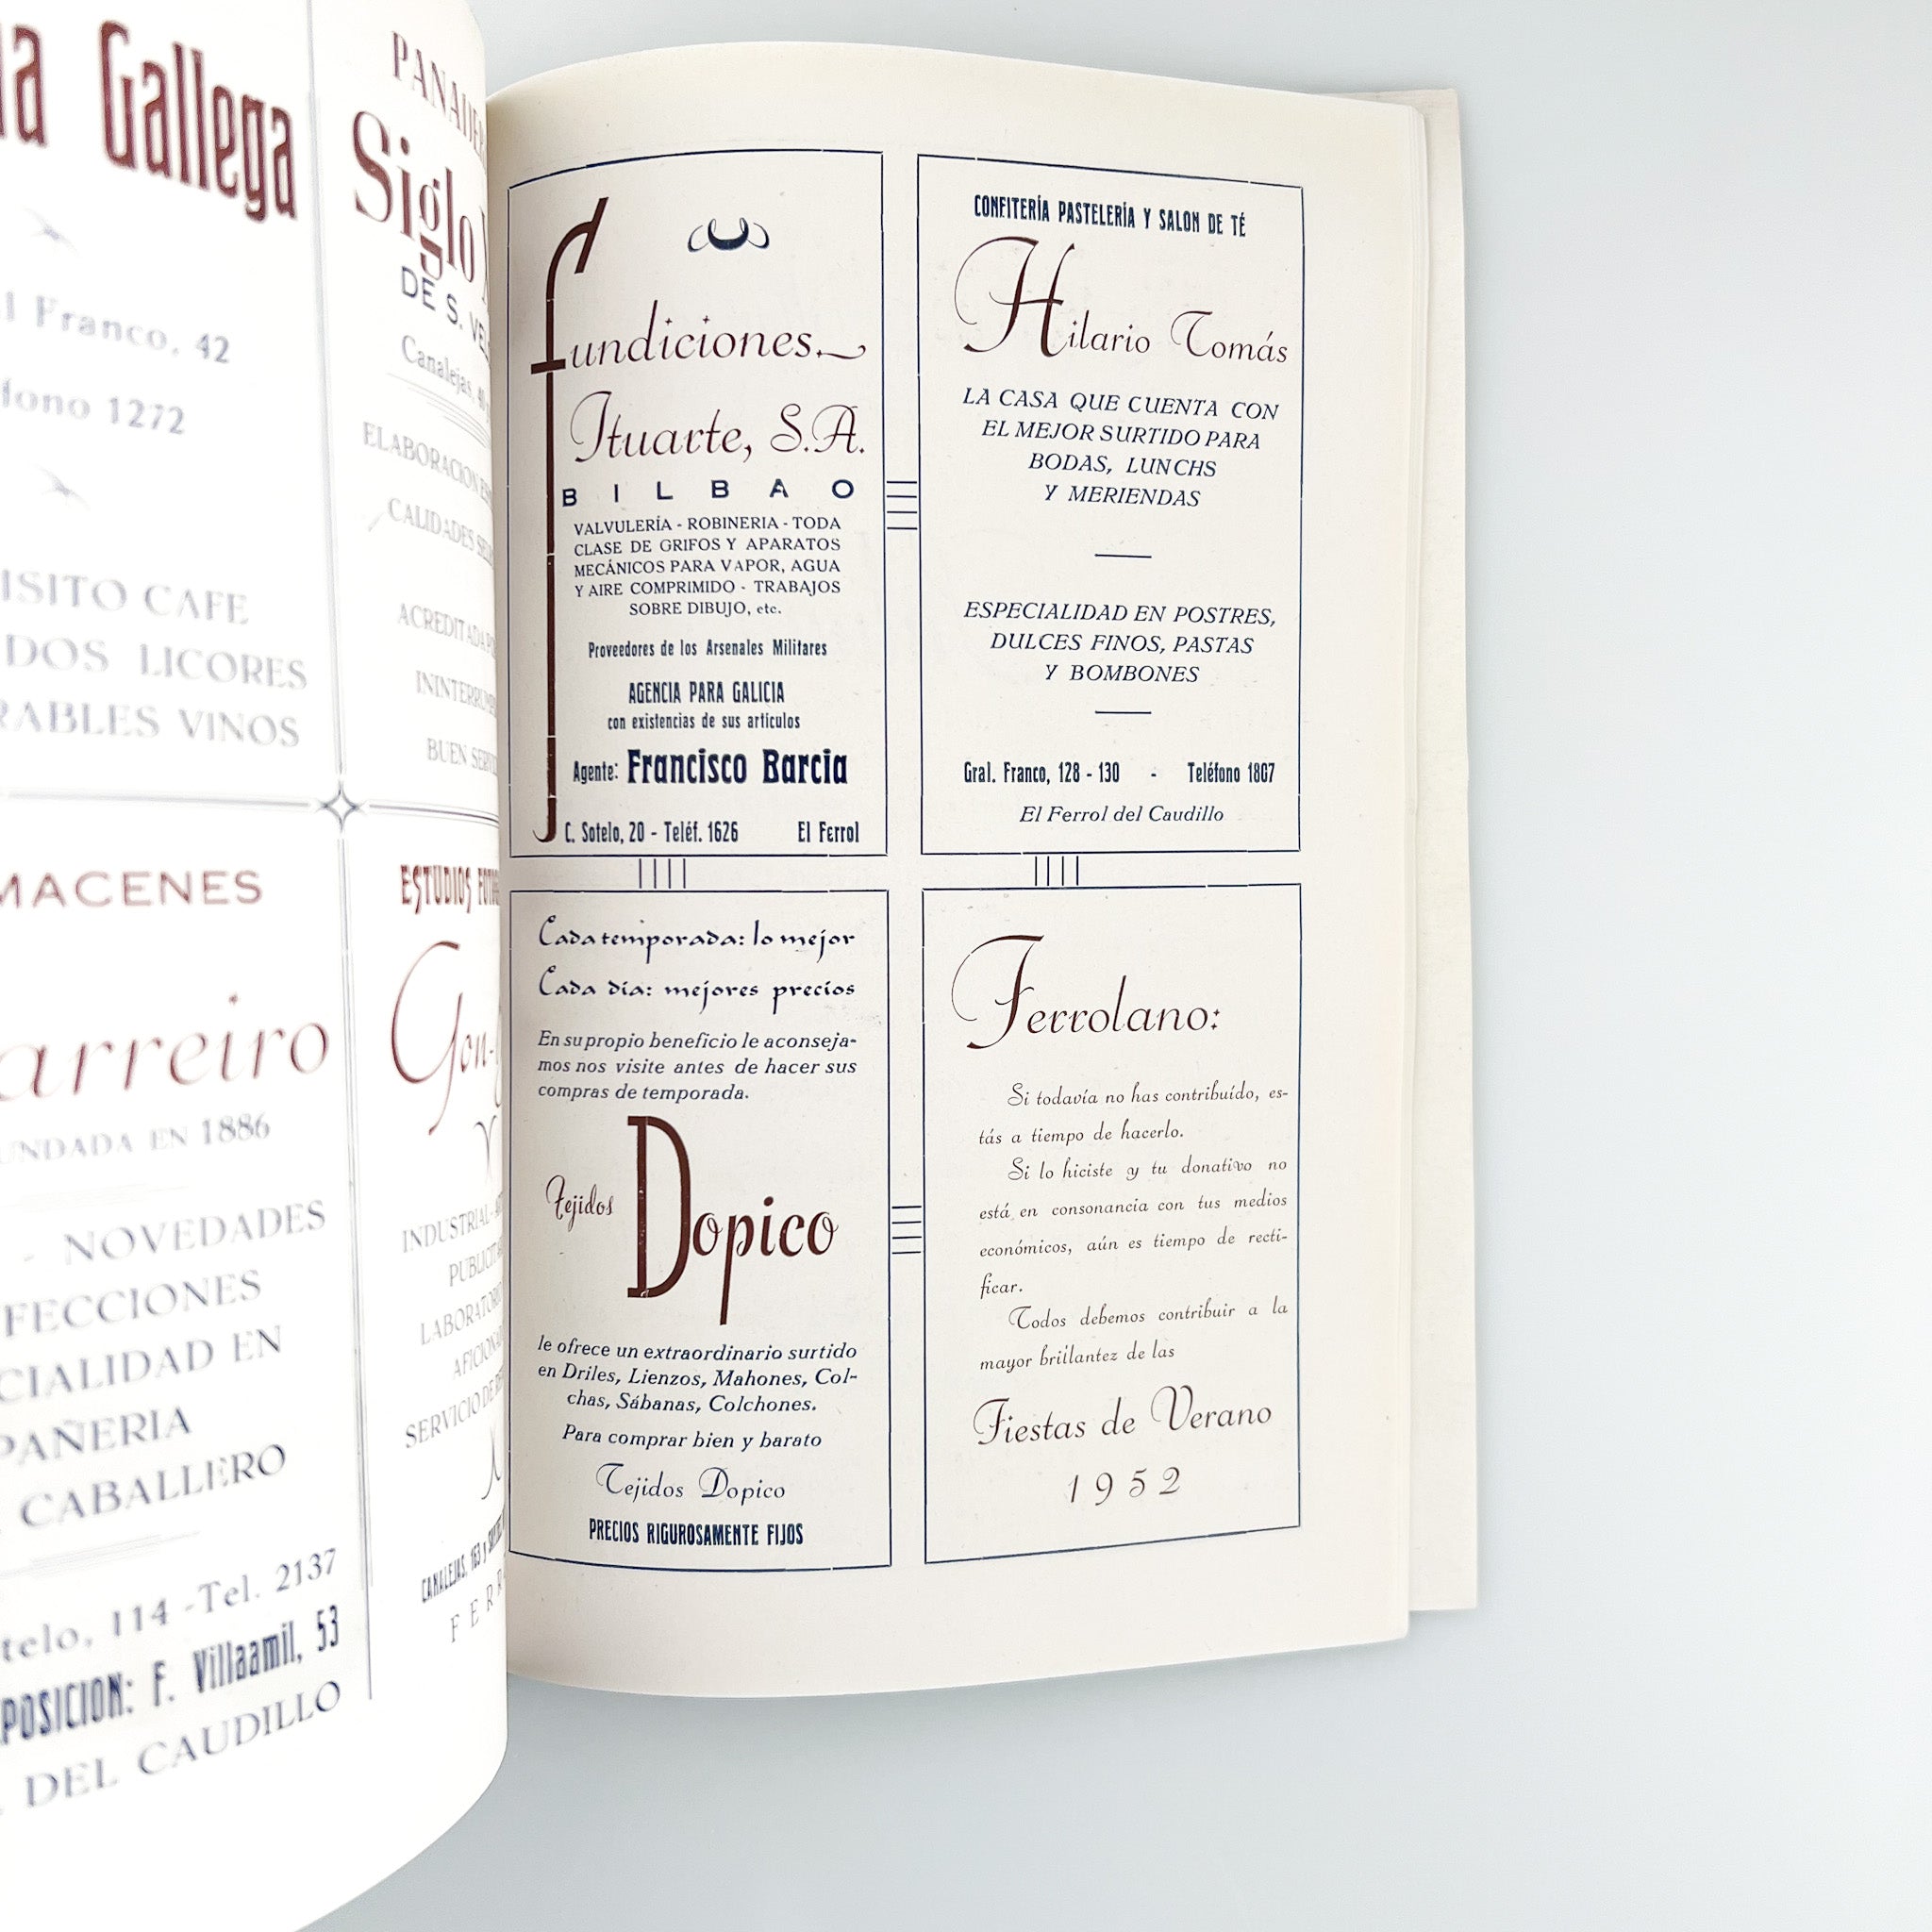 Gallega
Franco, 42
1272
CAFE
LICORES
VINOS
Siglo
DE S.
Canalejas,
CALIDADES
arreiro
EN 1886
- NOVEDADES
EN
CABALLERO
114 - Tel. 2137
F. Villaamil, 53
DEL CAUDILLO
ESTUDIOS
Fundiciones
Ituarte, S.A.
BILBAO
VALVULERÍA - ROBINERIA - TODA
CLASE DE GRIFOS Y APARATOS
MECÁNICOS PARA VAPOR, AGUA
Y AIRE COMPRIMIDO - TRABAJOS
SOBRE DIBUJO, etc.
Proveedores de los Arsenales Militares
AGENCIA PARA GALICIA
con existencias de sus artículos
Agente: Francisco Barcia
C. Sotelo, 20 - Teléf. 1626 El Ferrol
CONFITERÍA PASTELERÍA Y SALON DE TÉ
Hilario Tomás
LA CASA QUE CUENTA CON
EL MEJOR SURTIDO PARA
BODAS, LUNCHS
Y MERIENDAS
ESPECIALIDAD EN POSTRES,
DULCES FINOS, PASTAS
Y BOMBONES
Gral. Franco, 128 - 130 - Teléfono 1867
El Ferrol del Caudillo
Cada temporada: lo mejor
Cada día: mejores precios
En su propio beneficio le aconseja-
mos nos visite antes de hacer sus
compras de temporada.
Tejidos Dopico
le ofrece un extraordinario surtido
en Driles, Lienzos, Mahones, Col-
chas, Sábanas, Colchones.
Para comprar bien y barato
Tejidos Dopico
PRECIOS RIGUROSAMENTE FIJOS
Ferrolano:
Si todavía no has contribuído, es-
tás a tiempo de hacerlo.
Si lo hiciste y tu donativo no
está en consonancia con tus medios
económicos, aún es tiempo de recti-
ficar.
Todos debemos contribuir a la
mayor brillantez de las
Fiestas de Verano
1952